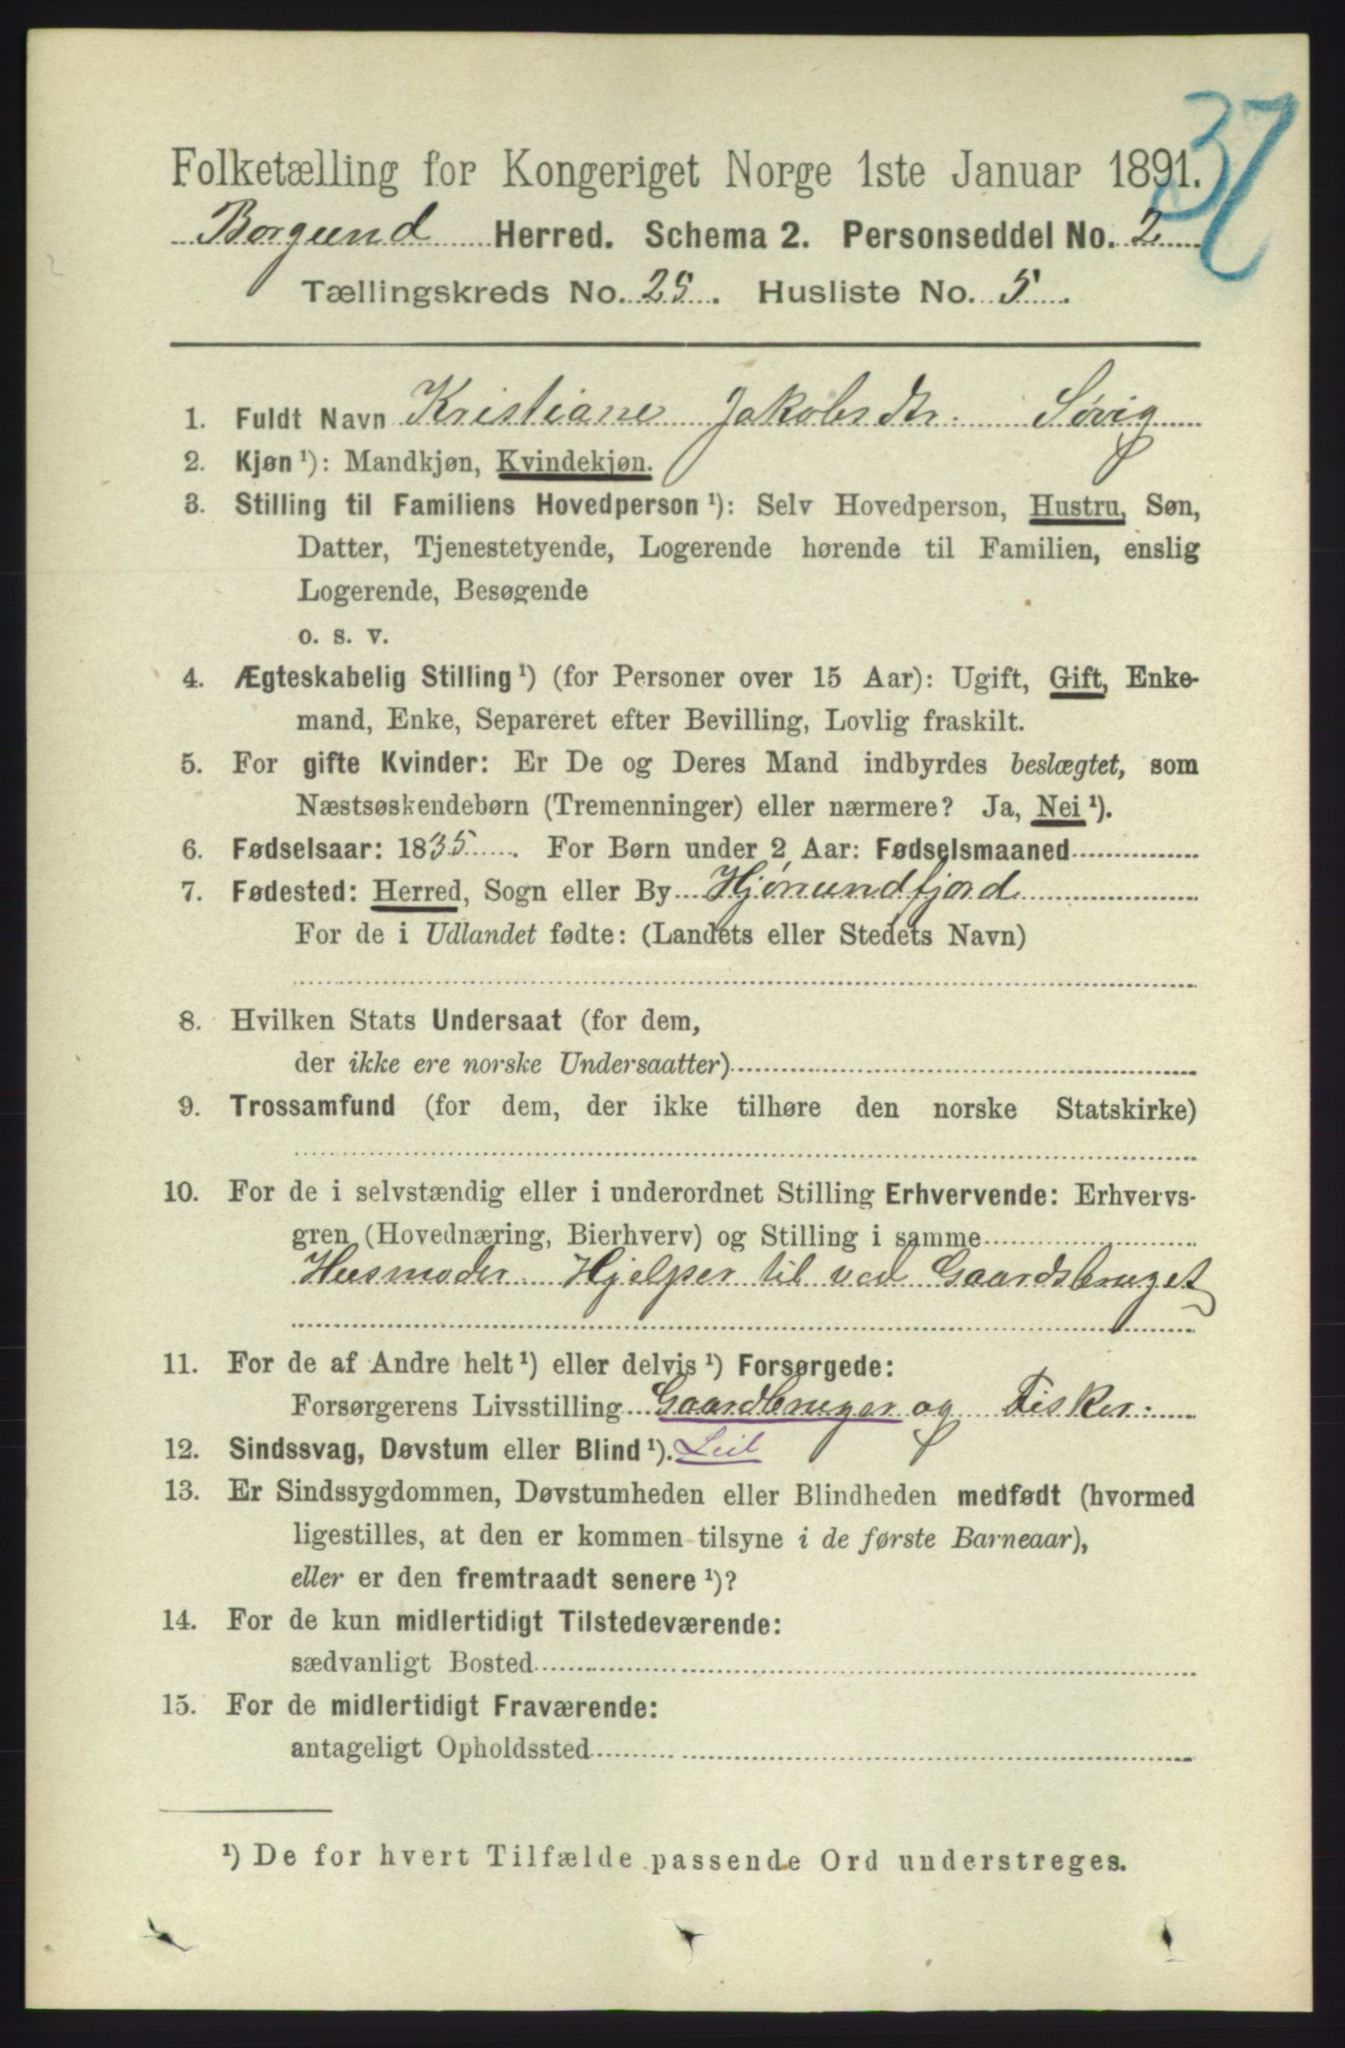 37
Folketælling for Kongeriget Norge 1ste Januar 1891.
Borgund Herred. Schema 2. Personseddel No. 2
Tællingskreds No. 25. Husliste No. 5.
1. Fuldt Navn Kristiane Jakobsdtr. Søvig
2. Kjøn ¹): Mandkjøn, Kvindekjøn.
3. Stilling til Familiens Hovedperson ¹): Selv Hovedperson, Hustru, Søn,
Datter, Tjenestetyende, Logerende hørende til Familien, enslig
Logerende, Besøgende
o. s. v.
4. Ægteskabelig Stilling ¹) (for Personer over 15 Aar): Ugift, Gift, Enke-
mand, Enke, Separeret efter Bevilling, Lovlig fraskilt.
5. For gifte Kvinder: Er De og Deres Mand indbyrdes beslægtet, som
Næstsøskendebørn (Tremenninger) eller nærmere? Ja, Nei ¹).
6. Fødselsaar: 1835. For Børn under 2 Aar: Fødselsmaaned
7. Fødested: Herred, Sogn eller By Hjørundfjord
For de i Udlandet fødte: (Landets eller Stedets Navn)
8. Hvilken Stats Undersaat (for dem,
der ikke ere norske Undersaatter)
9. Trossamfund (for dem, der ikke tilhøre den norske Statskirke)
10. For de i selvstændig eller i underordnet Stilling Erhvervende: Erhvervs-
gren (Hovednæring, Bierhverv) og Stilling i samme
Husmoder Hjelper til ved Gaardsbruget
11. For de af Andre helt ¹) eller delvis ¹) Forsørgede:
Forsørgerens Livsstilling Gaardbruger og Fisker.
12. Sindssvag, Døvstum eller Blind ¹). Leil
13. Er Sindssygdommen, Døvstumheden eller Blindheden medfødt (hvormed
ligestilles, at den er kommen tilsyne i de første Barneaar),
eller er den fremtraadt senere ¹)?
14. For de kun midlertidigt Tilstedeværende:
sædvanligt Bosted
15. For de midlertidigt Fraværende:
antageligt Opholdssted
¹) De for hvert Tilfælde passende Ord understreges.